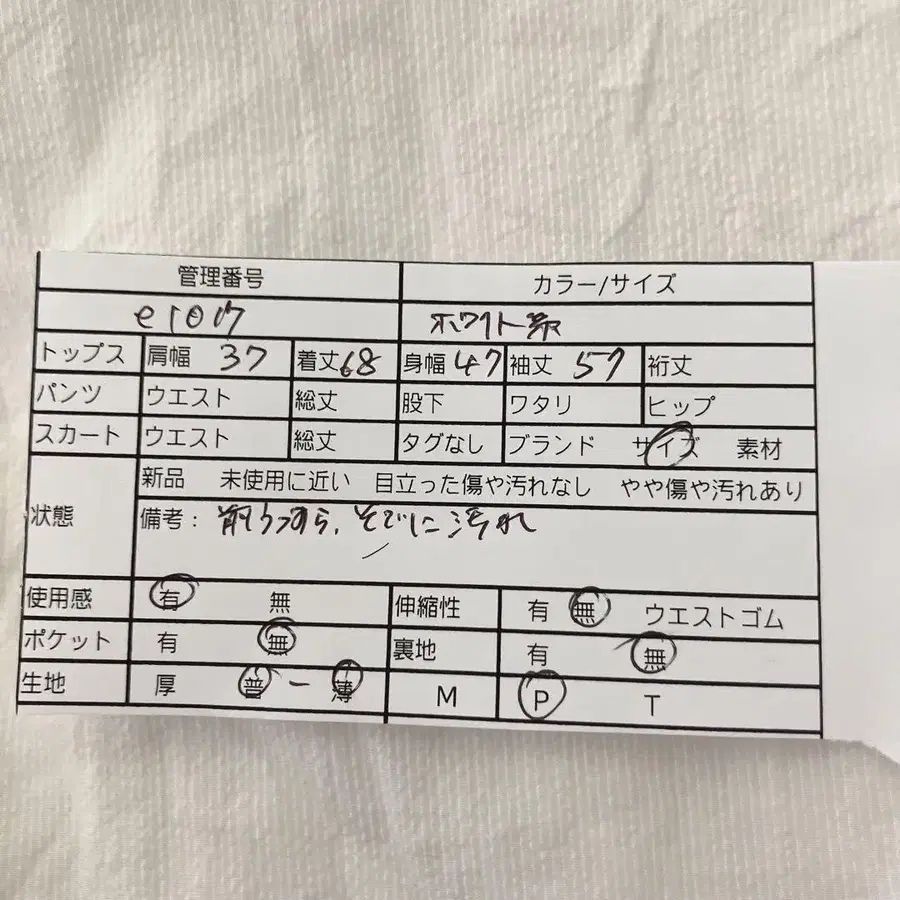 管理番号 カラー/サイズ
e1017 ホワイト系
トップス 肩幅 37 着丈 68 身幅 47 袖丈 57 裄丈
パンツ ウエスト 総丈 股下 ワタリ ヒップ
スカート ウエスト 総丈 タグなし ブランド サイズ 素材
新品 未使用に近い 目立った傷や汚れなし やや傷や汚れあり
状態 備考: 前うっすら、そでに汚れ
使用感 有 無 伸縮性 有 無 ウエストゴム
ポケット 有 無 裏地 有 無
生地 厚 普 ー 薄 M P T